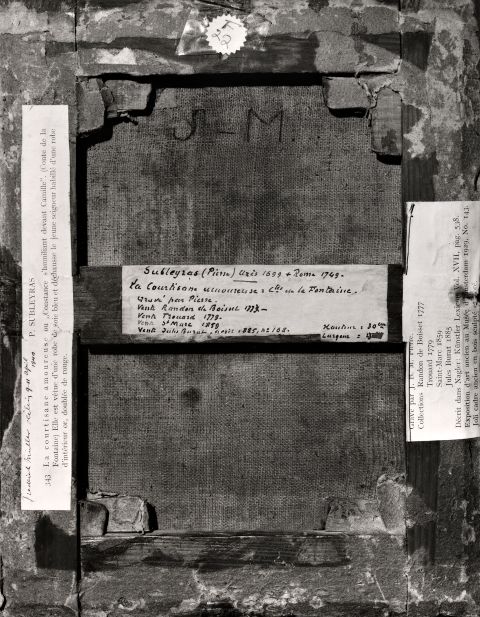 25
J-M.
Subleyras (Pierre) Uzès 1699 + Rome 1749.
La Courtisane amoureuse : Cte de la Fontaine.
Gravé par Pierre.
Vente Randon de Boisset 1777.—
Vente Trouard 1779.
Vente St Marc 1859
Vente Jules Burat, 1885, no 168.
Hauteur : 30
Largeur :
P. SUBLEYRAS
343 La courtisane amoureuse ou „Constance s'humiliant devant Camille". (Conte de la
Fontaine) Elle est vêtue d'une robe de soie bleu et déchausse le jeune seigneur habillé d'une robe
d'intérieur or, doublée de rouge.
Frederick Muller 9-11 april 1940
Gravé par J. B. M.
Collections Randon de Boisset 1777
Trouard 1779
Saint-Marc 1859
Jules Burat 1885
Décrit dans Nagler Künstler Lexikon Bd. XVII, pag. 538.
Exposition d'art ancien au Amsterdam 1929, No. 143.
Joli cadre ancien en bois sculpté